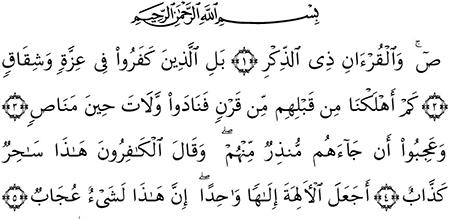 بِسْمِ اللَّهِ الرَّحْمَٰنِ الرَّحِيمِ
صٓ ۚ وَالْقُرْءَانِ ذِى الذِّكْرِ ﴿١﴾ بَلِ الَّذِينَ كَفَرُوا۟ فِى عِزَّةٍۢ وَشِقَاقٍۢ
﴿٢﴾ كَمْ أَهْلَكْنَا مِن قَبْلِهِم مِّن قَرْنٍۢ فَنَادَوا۟ وَّلَاتَ حِينَ مَنَاصٍۢ ﴿٣﴾
وَعَجِبُوٓا۟ أَن جَآءَهُم مُّنذِرٌۭ مِّنْهُمْ ۖ وَقَالَ الْكَٰفِرُونَ هَٰذَا سَٰحِرٌۭ
كَذَّابٌ ﴿٤﴾ أَجَعَلَ الْءَالِهَةَ إِلَٰهًۭا وَٰحِدًا ۖ إِنَّ هَٰذَا لَشَىْءٌ عُجَابٌۭ ﴿٥﴾